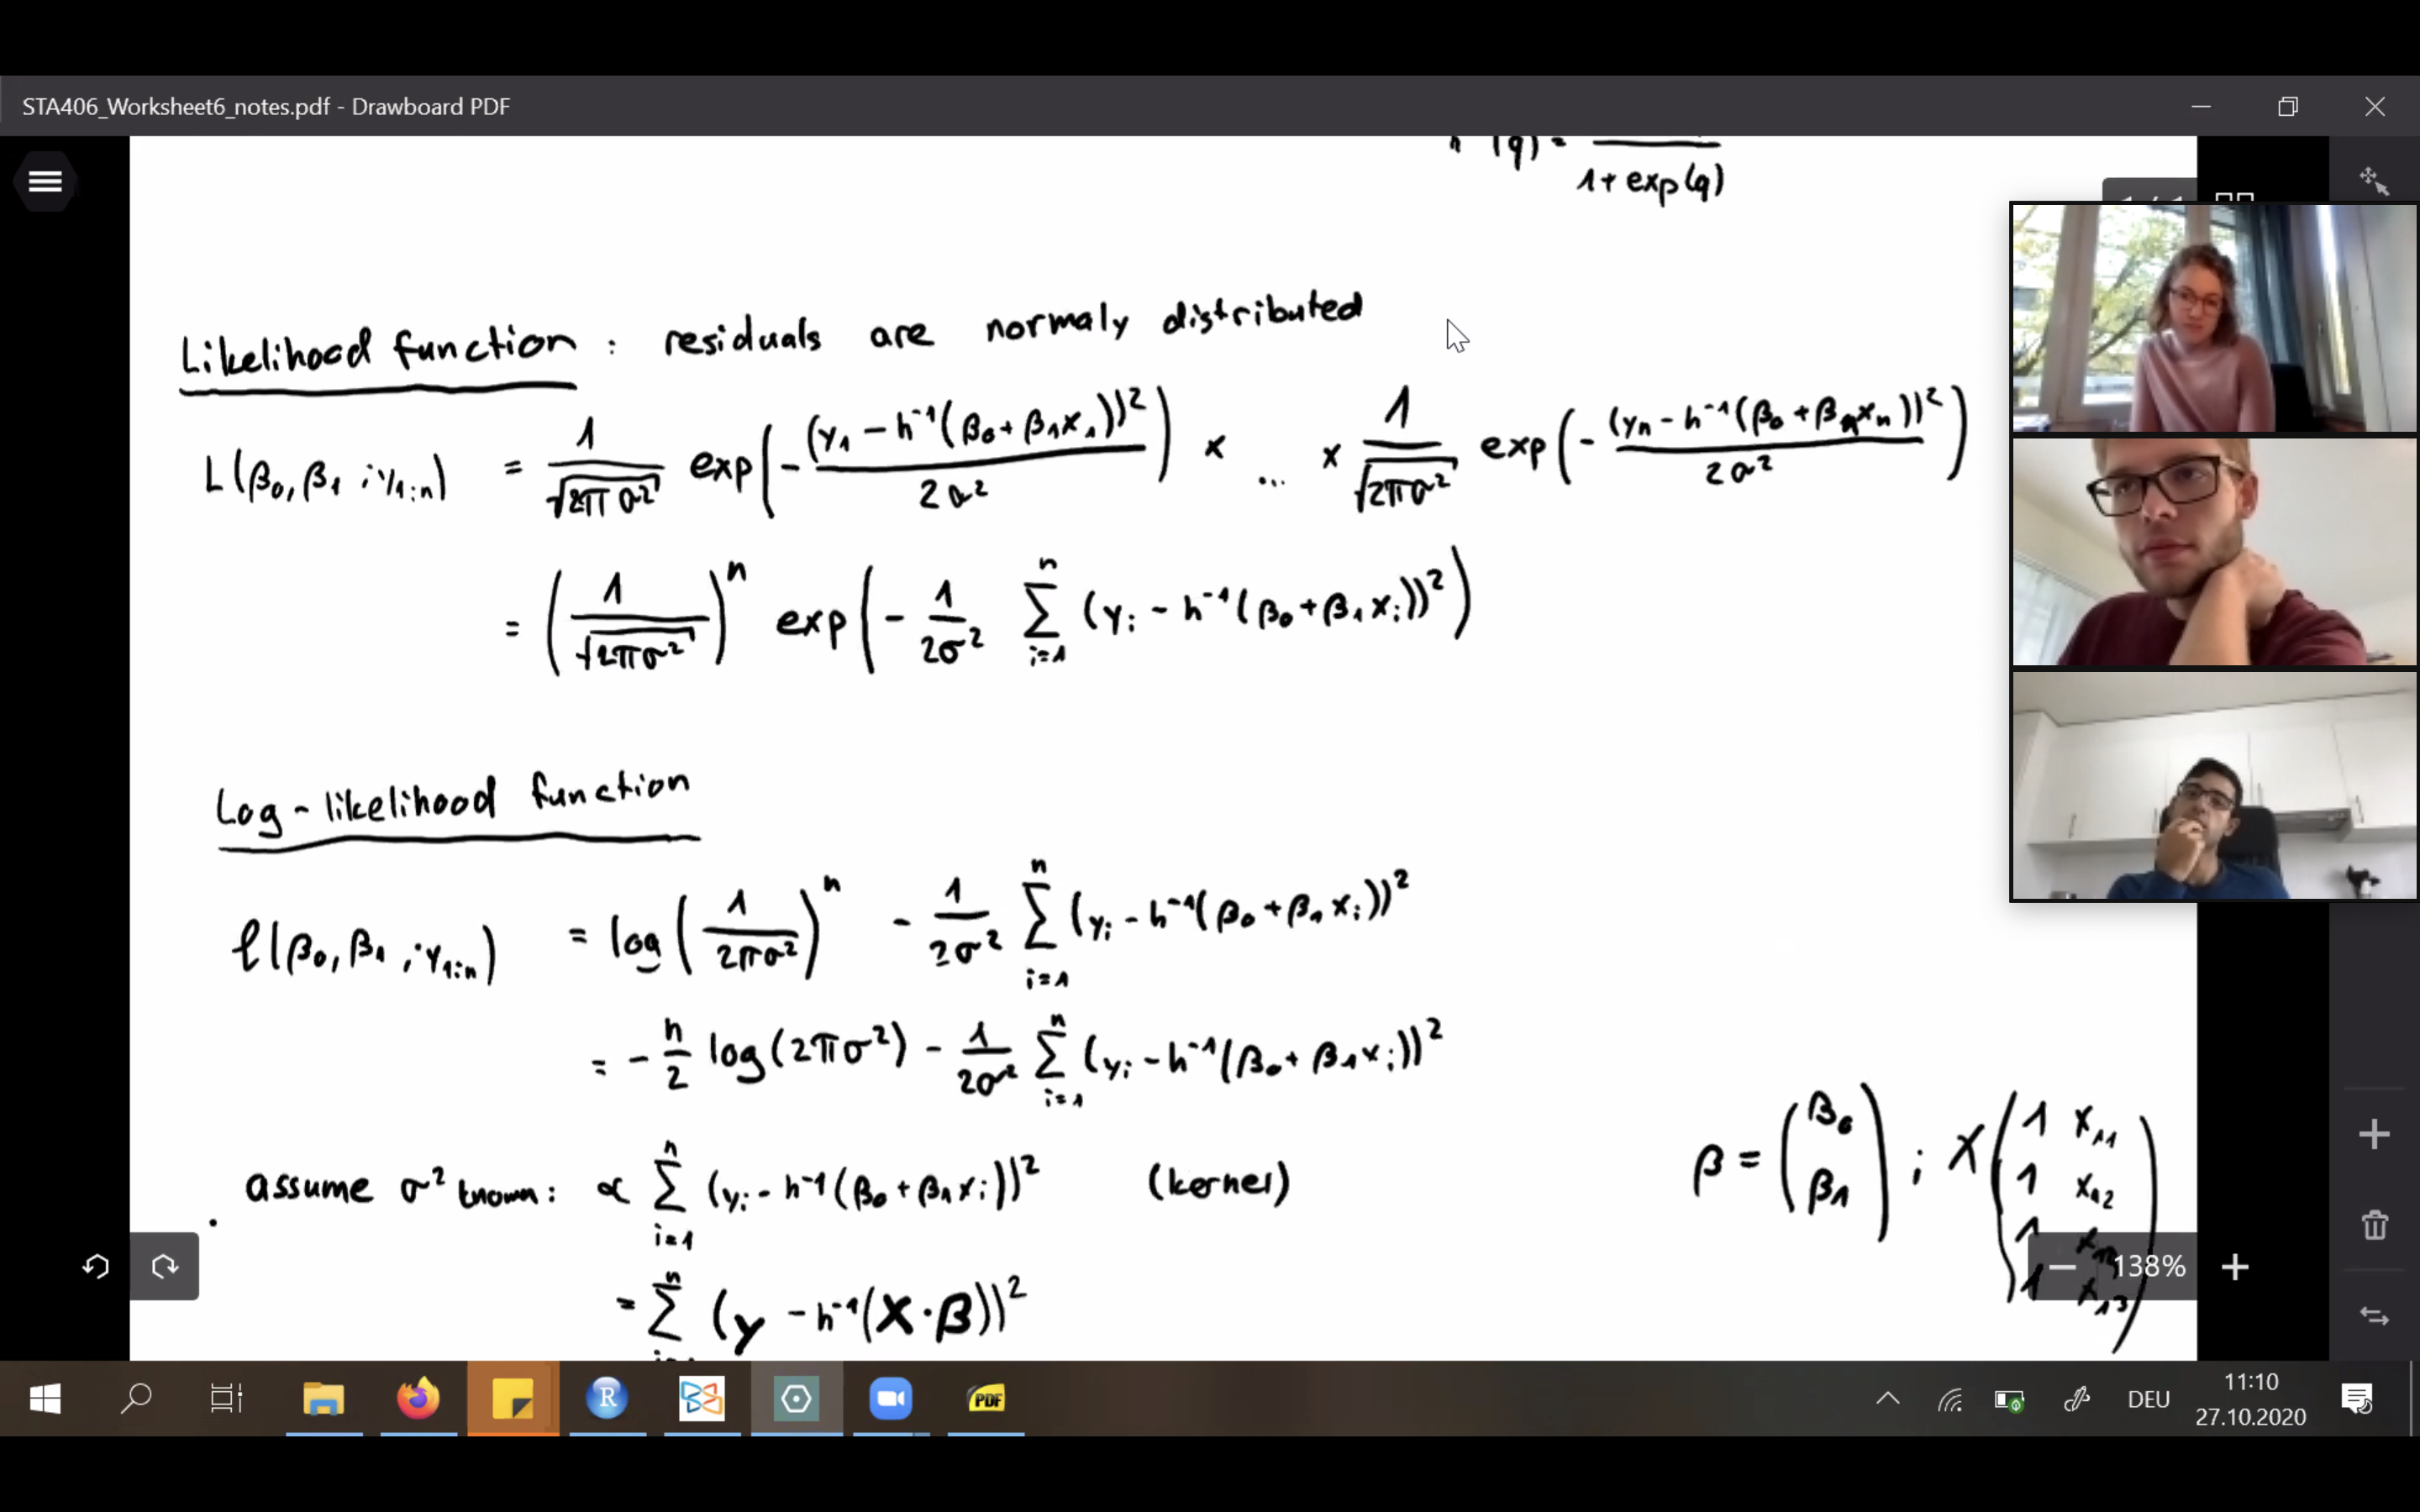 STA406_Worksheet6_notes.pdf - Drawboard PDF
1+ exp(q)
Likelihood function : residuals are normaly distributed
L(β₀, β₁ ; y₁:ₙ) = 1/√(2πσ²) exp(- (y₁ - h⁻¹(β₀ + β₁x₁))² / 2σ²) × ... × 1/√(2πσ²) exp(- (yₙ - h⁻¹(β₀ + β₁xₙ))² / 2σ²)
= (1/√(2πσ²))ⁿ exp(- 1/2σ² Σ i=1 n (yᵢ - h⁻¹(β₀ + β₁xᵢ))²)
Log-likelihood function
ℓ(β₀, β₁ ; y₁:ₙ) = log(1/2πσ²)ⁿ - 1/2σ² Σ i=1 n (yᵢ - h⁻¹(β₀ + β₁xᵢ))²
= - n/2 log(2πσ²) - 1/2σ² Σ i=1 n (yᵢ - h⁻¹(β₀ + β₁xᵢ))²
β = (β₀ β₁) ; X (1 x₁₁
1 x₁₂
assume σ² known : ∝ Σ i=1 n (yᵢ - h⁻¹(β₀ + β₁xᵢ))² (kernel)
1 x₁₃)
= Σ n (y - h⁻¹(X·β))²
138%
R
PDF
DEU
11:10
27.10.2020